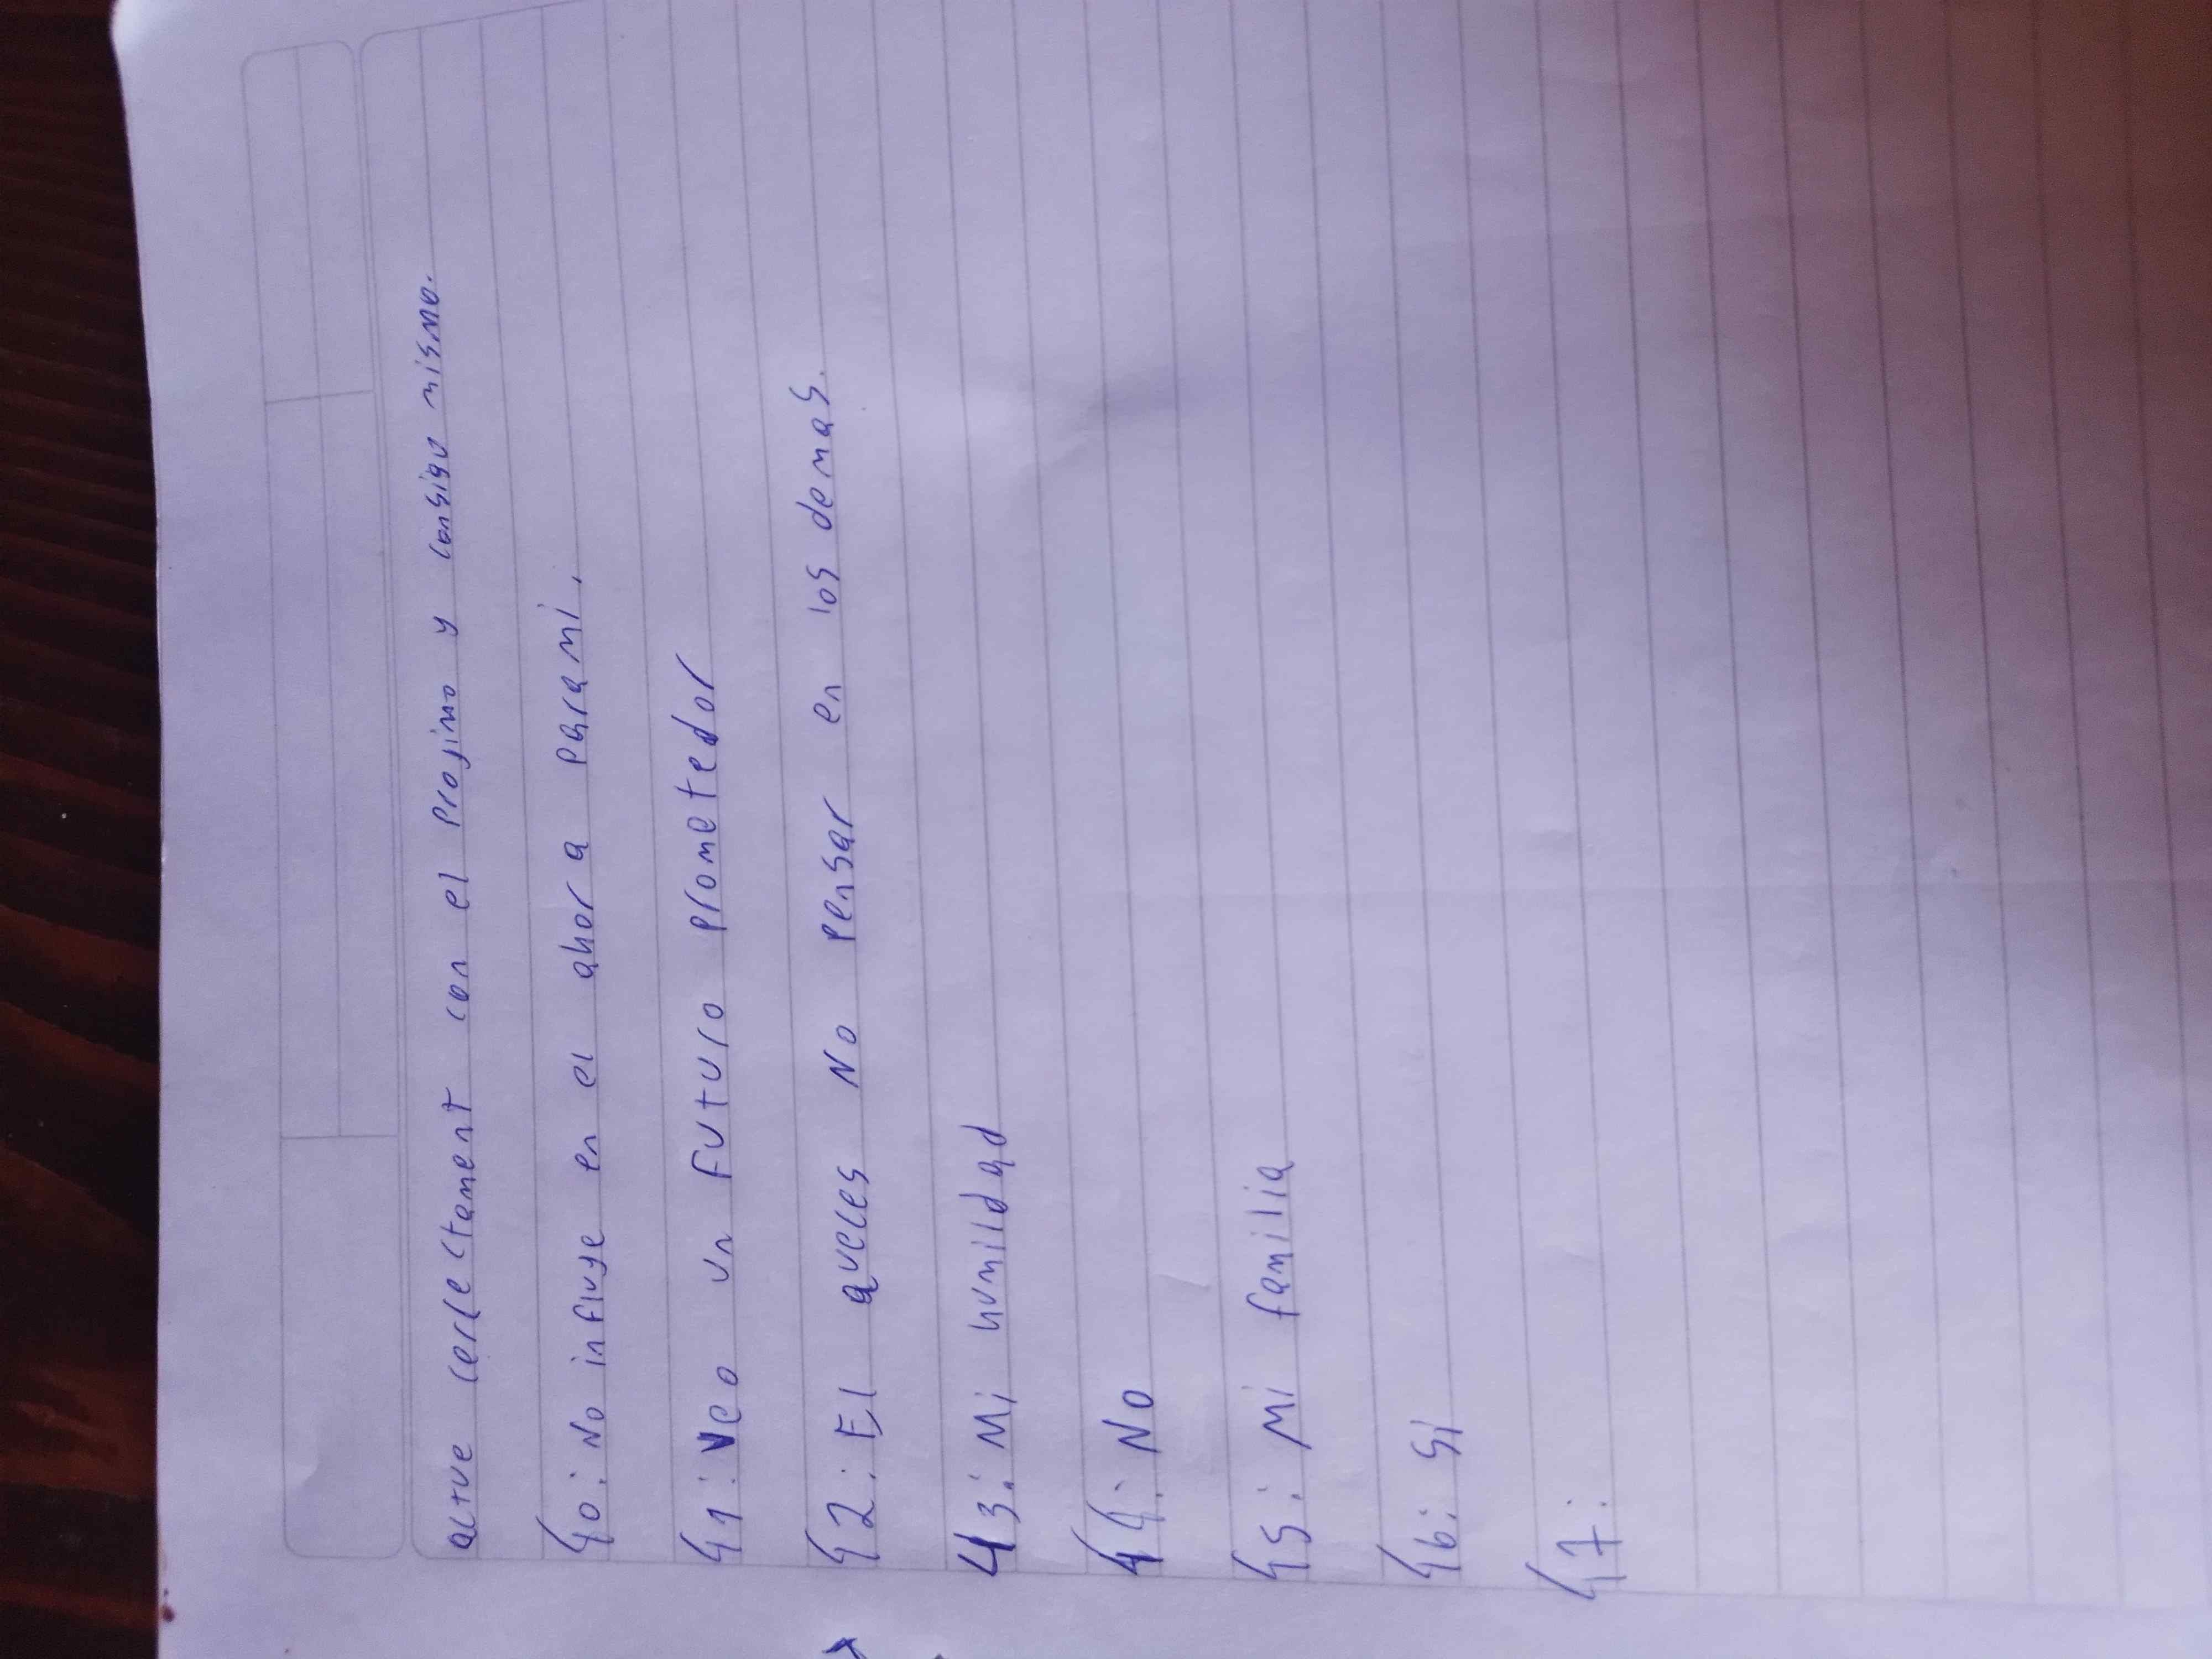 actue correctament con el projimo y consigo mismo.
40: No influye en el ahora para mi.
41: Veo un futuro prometedor
42: El aveces No pensar en los demas.
43: Mi humildad
44: No
45: Mi familia
46: Si
47: